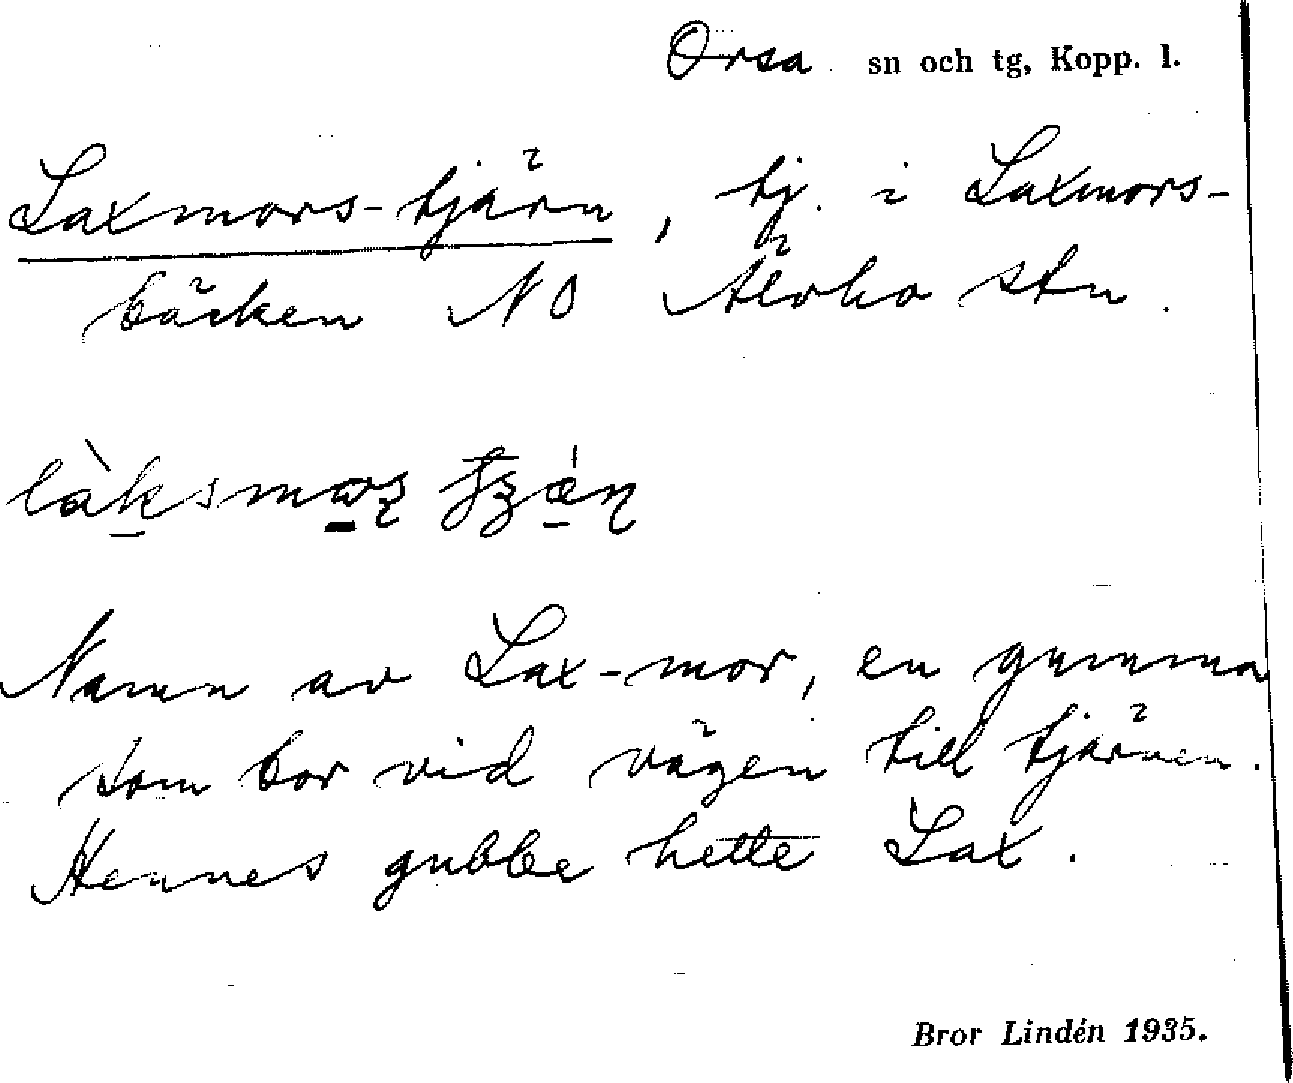 Orsa sn och tg, Kopp. l.
Laxmors-tjärn, tj. i Laxmors-
bäcken NO Älvho stn.
Namn av Lax-mor, en gumma
som bor vid vägen till tjärnen.
Hennes gubbe hette Lax.
Bror Lindén 1935.